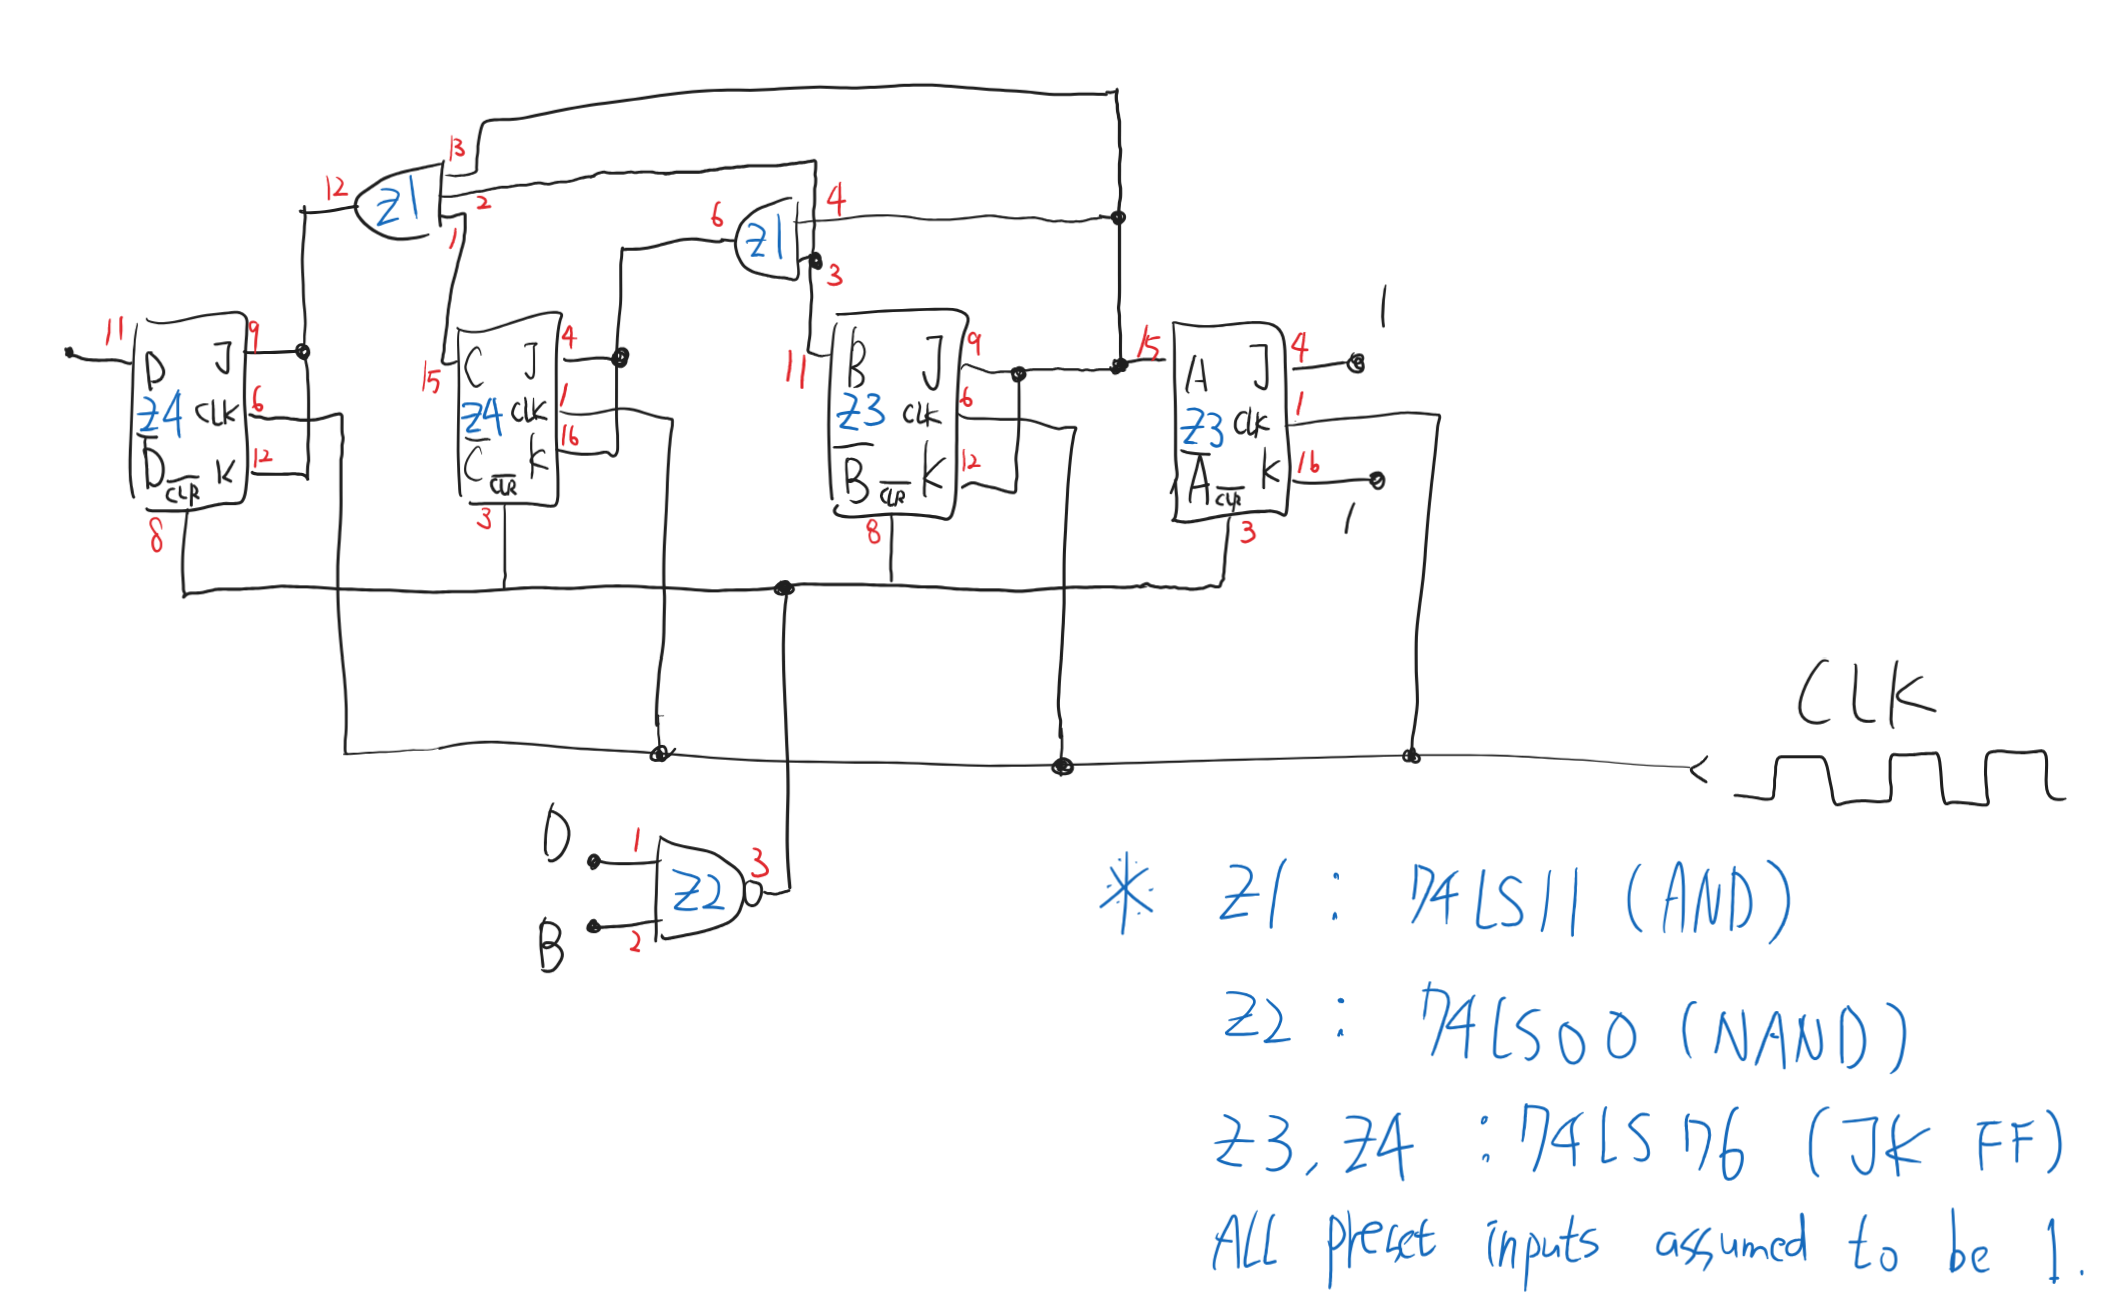 13
12
Z1
2
1
4
6
Z1
3
1
11
D J 9
Z4 CLK 6
D K 12
CLR
8
15
C J 4
Z4 CLK 1
C K 16
CLR
3
11
B J 9
Z3 CLK 6
B K 12
CLR
8
15
A J 4
Z3 CLK 1
A K 16
CLR
3
1
CLK
D 1
Z2 3
B 2
* Z1 : 74LS11 (AND)
Z2 : 74LS00 (NAND)
Z3, Z4 : 74LS76 (JK FF)
ALL preset inputs assumed to be 1.